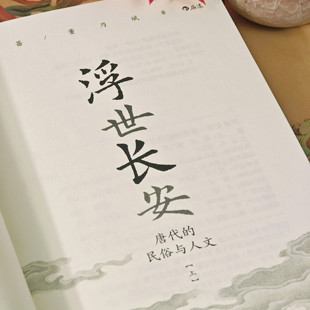 浮世长安
唐代的
民俗与人文
【上】